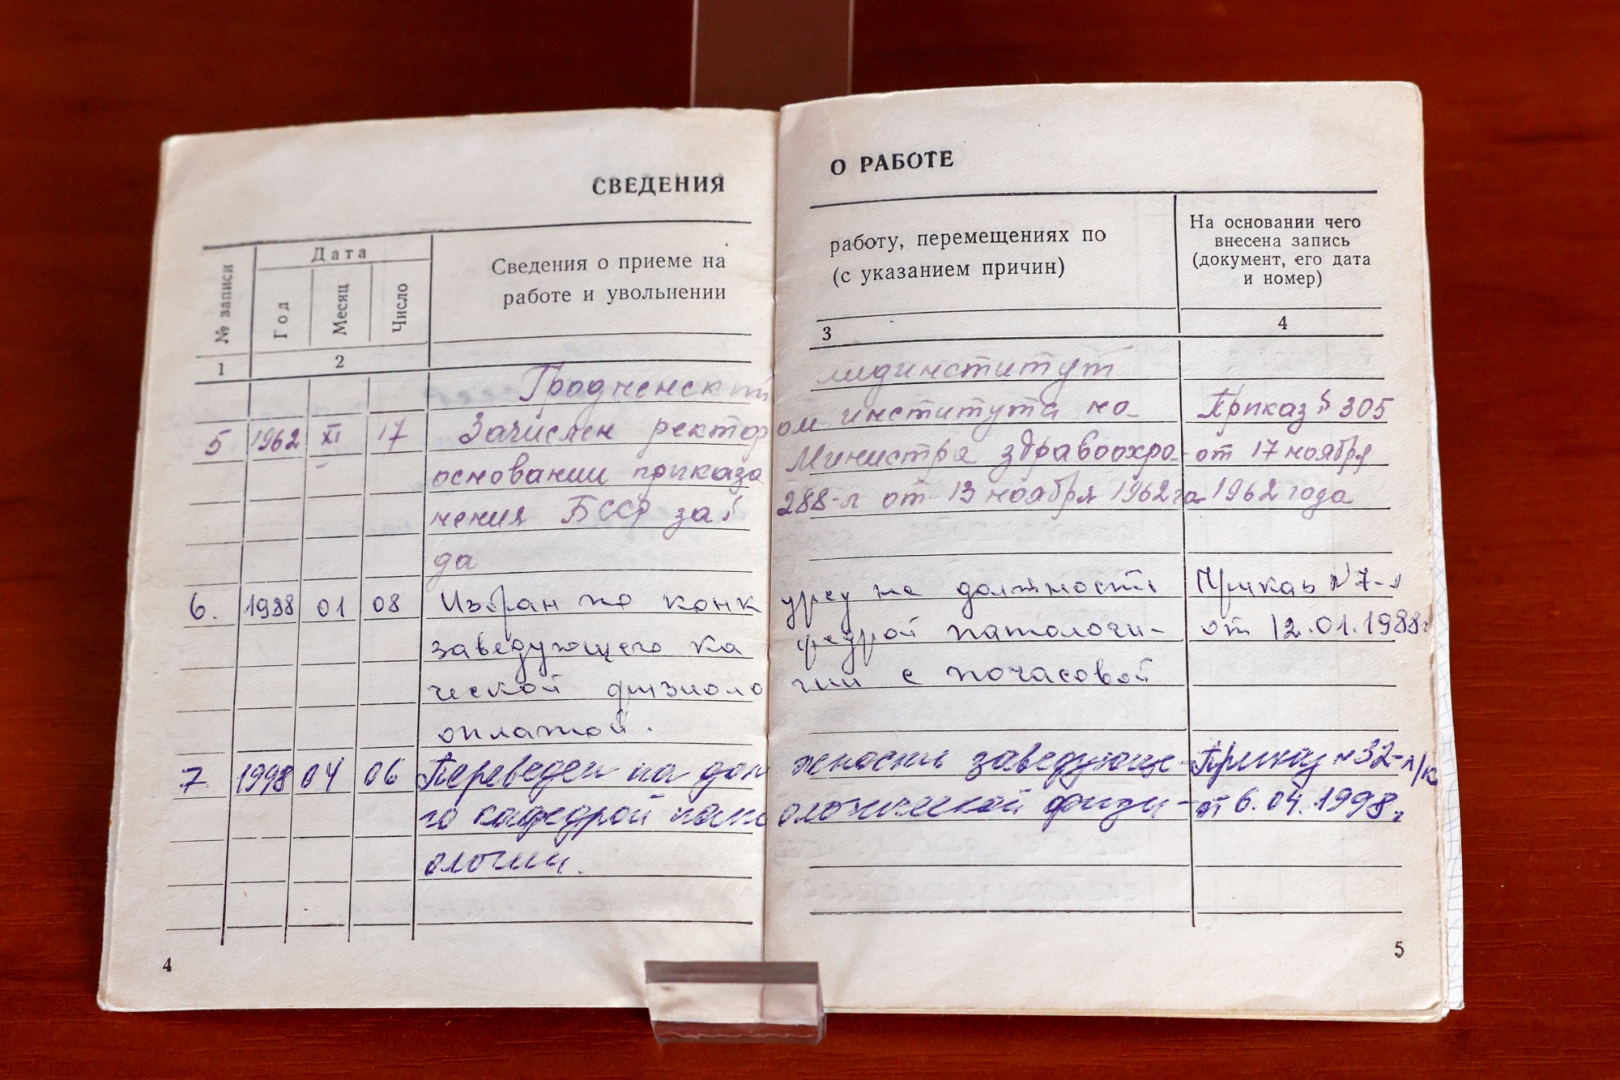 СВЕДЕНИЯ О РАБОТЕ
№ записи
Дата
Год
Месяц
Число
Сведения о приеме на работу, перемещениях по
работе и увольнении (с указанием причин)
На основании чего
внесена запись
(документ, его дата
и номер)
1 2 3 4
Гродненский мединститут
5 1962 XI 17 Зачислен ректором института на Приказ № 305
основании приказа Министра здравоохра- от 17 ноября
нения БССР за № 288-л от 13 ноября 1962 го 1962 года
да
6. 1988 01 08 Избран по конкурсу на должность Приказ № 7-л
заведующего кафедрой патологи- от 12.01.1988г
ческой физиологии с почасовой
оплатой.
7 1998 04 06 Переведен на должность заведующе- Приказ № 32-л/к
го кафедрой патологической физи- от 6.04.1998г
ологии.
4
5